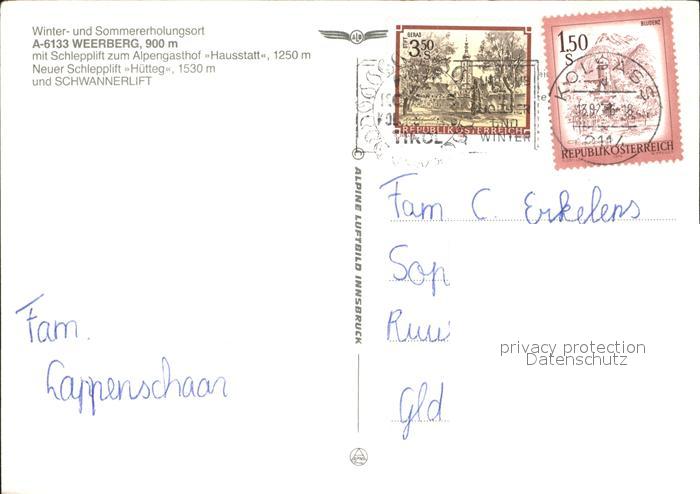 Winter- und Sommererholungsort
A-6133 WEERBERG, 900 m
mit Schlepplift zum Alpengasthof »Hausstatt«, 1250 m
Neuer Schlepplift »Hütteg«, 1530 m
und SCHWANNERLIFT
GERAS
3.50
S
REPUBLIK ÖSTERREICH
TIROL
UND
WINTER
BLUDENZ
1.50
S
REPUBLIK ÖSTERREICH
KOLSASS
6114
© ALPINE LUFTBILD INNSBRUCK
Fam C. Erkelens
Sop
Ruw
Gld
Fam.
Lappenschaar
privacy protection
Datenschutz